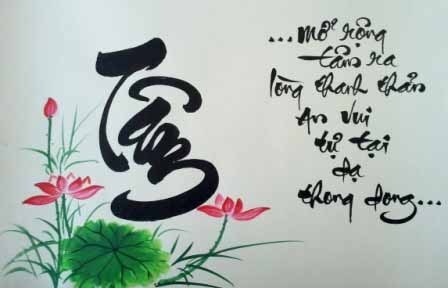 Tâm
...mở rộng
tâm ra
lòng thanh thản
An vui
tự tại
dạ
thong dong...